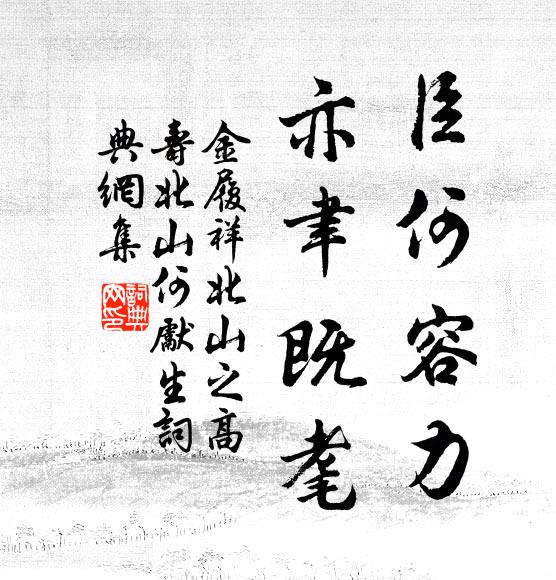 臣何容力
亦聿既耄
金履祥北山之高
壽北山何獻生詞
典網集
詞典網印